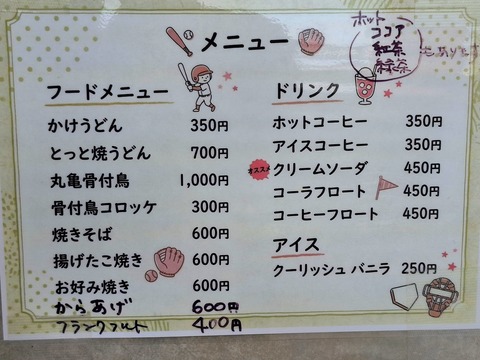 メニュー
ホット
ココア
紅茶
緑茶
もあります
フードメニュー
かけうどん 350円
とっと焼うどん 700円
丸亀骨付鳥 1,000円
骨付鳥コロッケ 300円
焼きそば 600円
揚げたこ焼き 600円
お好み焼き 600円
からあげ 600円
フランクフルト 400円
ドリンク
ホットコーヒー 350円
アイスコーヒー 350円
オススメ クリームソーダ 450円
コーラフロート 450円
コーヒーフロート 450円
アイス
クーリッシュ バニラ 250円